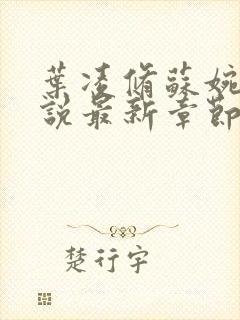 葉凌脩蘇婉
說最新章節
楚行宇